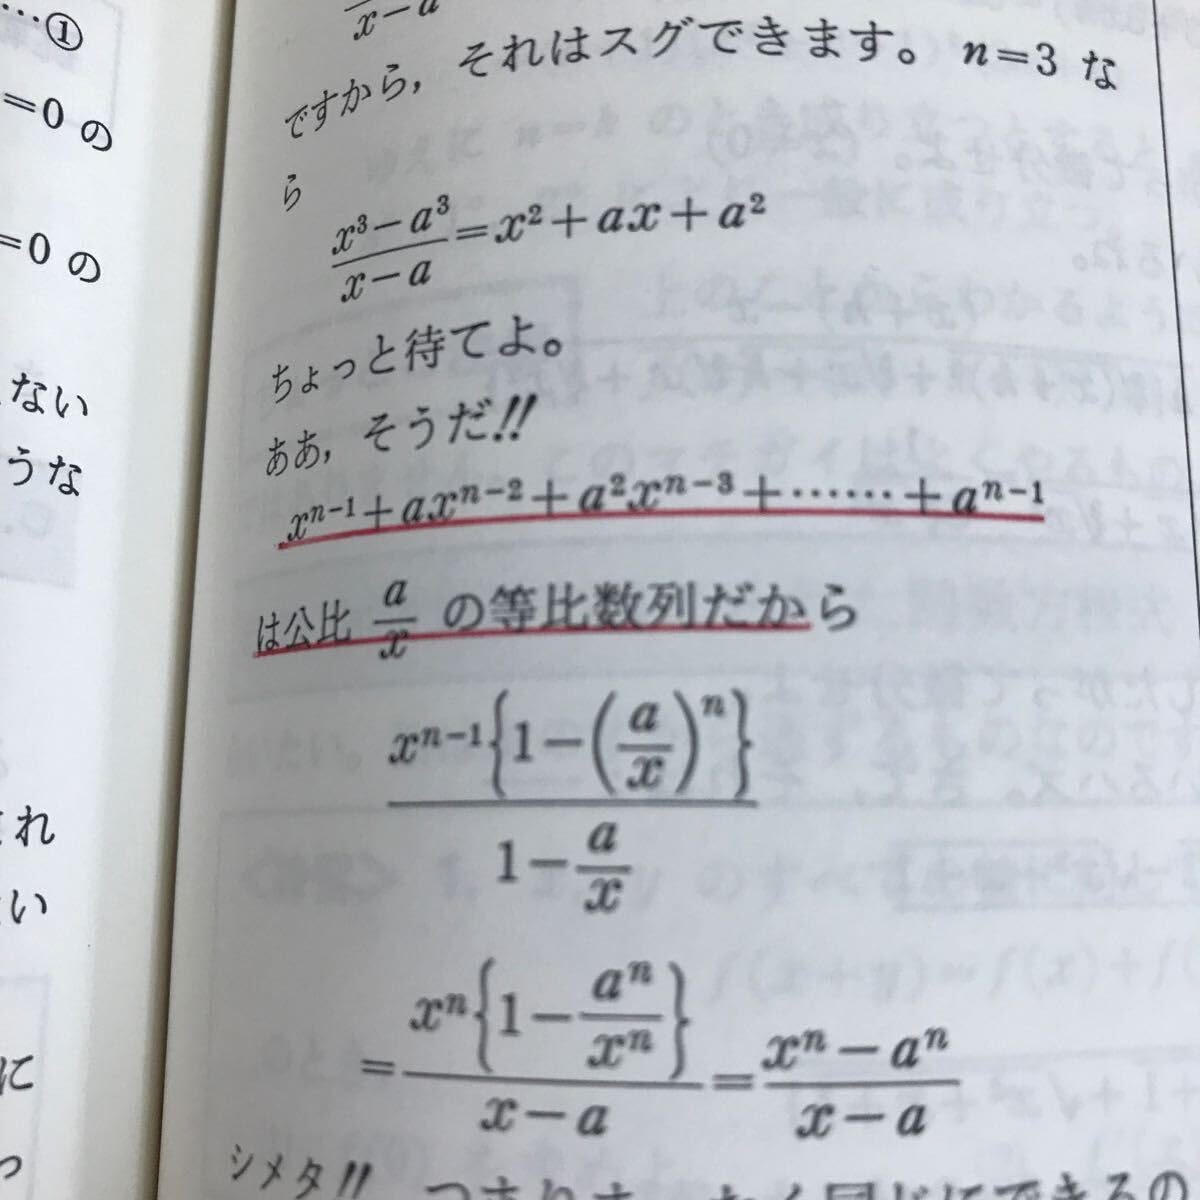 …①
=0 の
=0 の
ない
うな
れ
い
に
っ
x−a
ですから，それはスグできます。 n=3 な
ら
\frac{x^3−a^3}{x−a}=x^2+ax+a^2
ちょっと待てよ。
ああ，そうだ!!
x^{n−1}+ax^{n−2}+a^2x^{n−3}+……+a^{n−1}
は公比 \frac{a}{x} の等比数列だから
\frac{x^{n−1}\{1−(\frac{a}{x})^n\}}{1−\frac{a}{x}}
=\frac{x^n\{1−\frac{a^n}{x^n}\}}{x−a}=\frac{x^n−a^n}{x−a}
シメタ!!